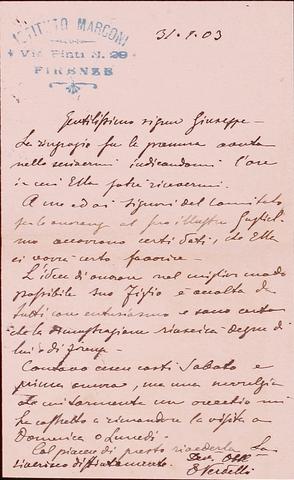 ISTITUTO MARCONI
Via Pinti N. 29
FIRENZE
31. 1. 03
Gentilissimo signor Giuseppe -
La ringrazio per la premura avuta
nello scrivermi indicandomi l'ora
in cui Ella potrà ricevermi.
A me ed ai signori del Comitato
per le onoranze al più illustre Gugliel-
mo occorrono certi dati, che Ella
ci vorrà certo favorire -
L'idea di onorare nel miglior modo
possibile suo Figlio è accolta da
tutti con entusiasmo e sono certo
che la dimostrazione riuscirà degna di
lui e di Firenze -
Contavo venir costì Sabato e
prima ancora, ma una nevralgia
un orecchio mi
ha costretto a rimandare la visita a
Domenica o Lunedì -
Col piacere di presto rivederla La
riverisco distintamente.
Dev. Obb.